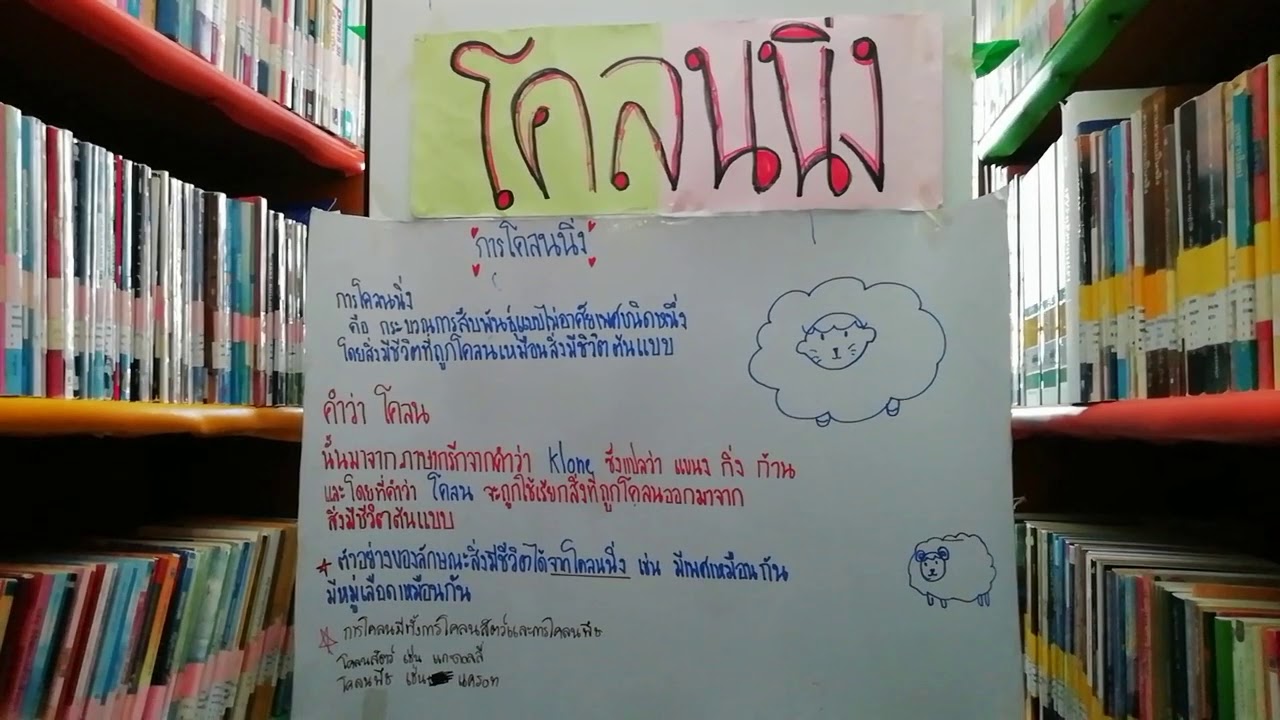 โคลนนิ่ง
การโคลนนิ่ง
การโคลนนิ่ง
คือ กระบวนการสืบพันธุ์แบบไม่อาศัยเพศชนิดหนึ่ง
โดยสิ่งมีชีวิตที่ถูกโคลนเหมือนสิ่งมีชีวิตต้นแบบ
คำว่า โคลน
นั้นมาจากภาษากรีกจากคำว่า Klone ซึ่งแปลว่า แขนง กิ่ง ก้าน
และโดยที่คำว่า โคลน จะถูกใช้เรียกสิ่งที่ถูกโคลนออกมาจาก
สิ่งมีชีวิตต้นแบบ
ตัวอย่างของลักษณะสิ่งมีชีวิตได้จากโคลนนิ่ง เช่น มีเพศเหมือนกัน
มีหมู่เลือดเหมือนกัน
การโคลนมีทั้งการโคลนสัตว์และการโคลนพืช
โคลนสัตว์ เช่น แกะดอลลี่
โคลนพืช เช่น แครอท